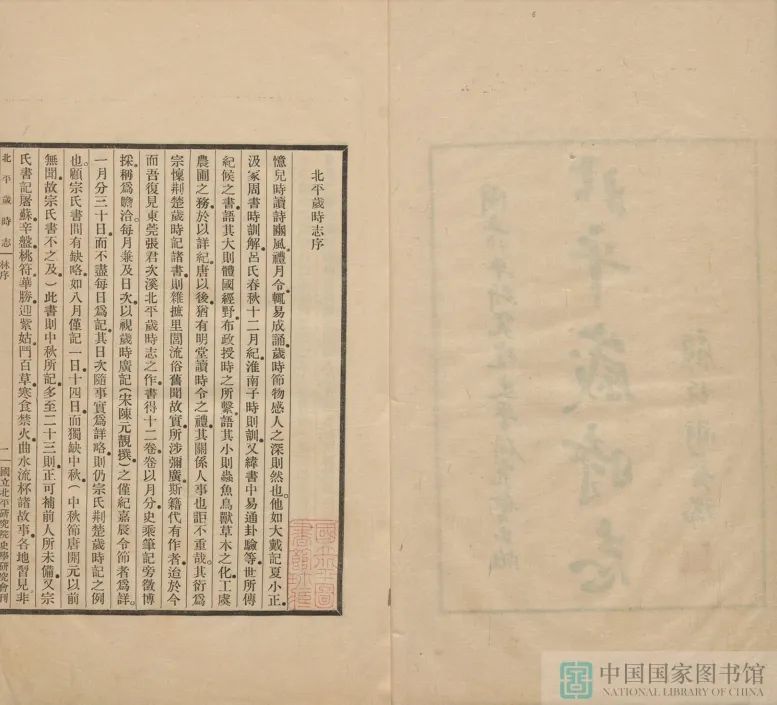 北平歲時志序
憶兒時讀詩豳風禮月令輒易成誦歲時節物感人之深則然也他如大戴記夏小正
汲冢周書時訓解呂氏春秋十二月紀淮南子時則訓又緯書中易通卦驗等世所傳
紀候之書語其大則體國經野布政授時之所繫語其小則蟲魚鳥獸草木之化工虞
農圃之務於以詳紀唐以後猶有明堂讀時令之禮其關係人事也詎不重哉其衍爲
宗懍荆楚歲時記諸書則雜摭里閭流俗舊聞故實所涉彌廣斯籍代有作者迨於今
而吾復見東莞張君次溪北平歲時志之作書得十二卷卷以月分史乘筆記旁徵博
採稱爲贍洽每月兼及日次以視歲時廣記(宋陳元靚撰)之僅紀嘉辰令節者爲詳
一月分三十日而不盡每日爲記其日次隨事實爲詳略則仍宗氏荆楚歲時記之例
也顧宗氏書間有缺略如八月僅記一日十四日而獨缺中秋(中秋節唐開元以前
無聞故宗氏書不之及)此書則中秋所記多至二十三則正可補前人所未備又宗
氏書記屠蘇辛盤桃符華勝迎紫姑鬥百草寒食禁火曲水流杯諸故事各地習見非
北平歲時志 林序 一 國立北平研究院史學研究會刊
中国国家图书馆
NATIONAL LIBRARY OF CHINA